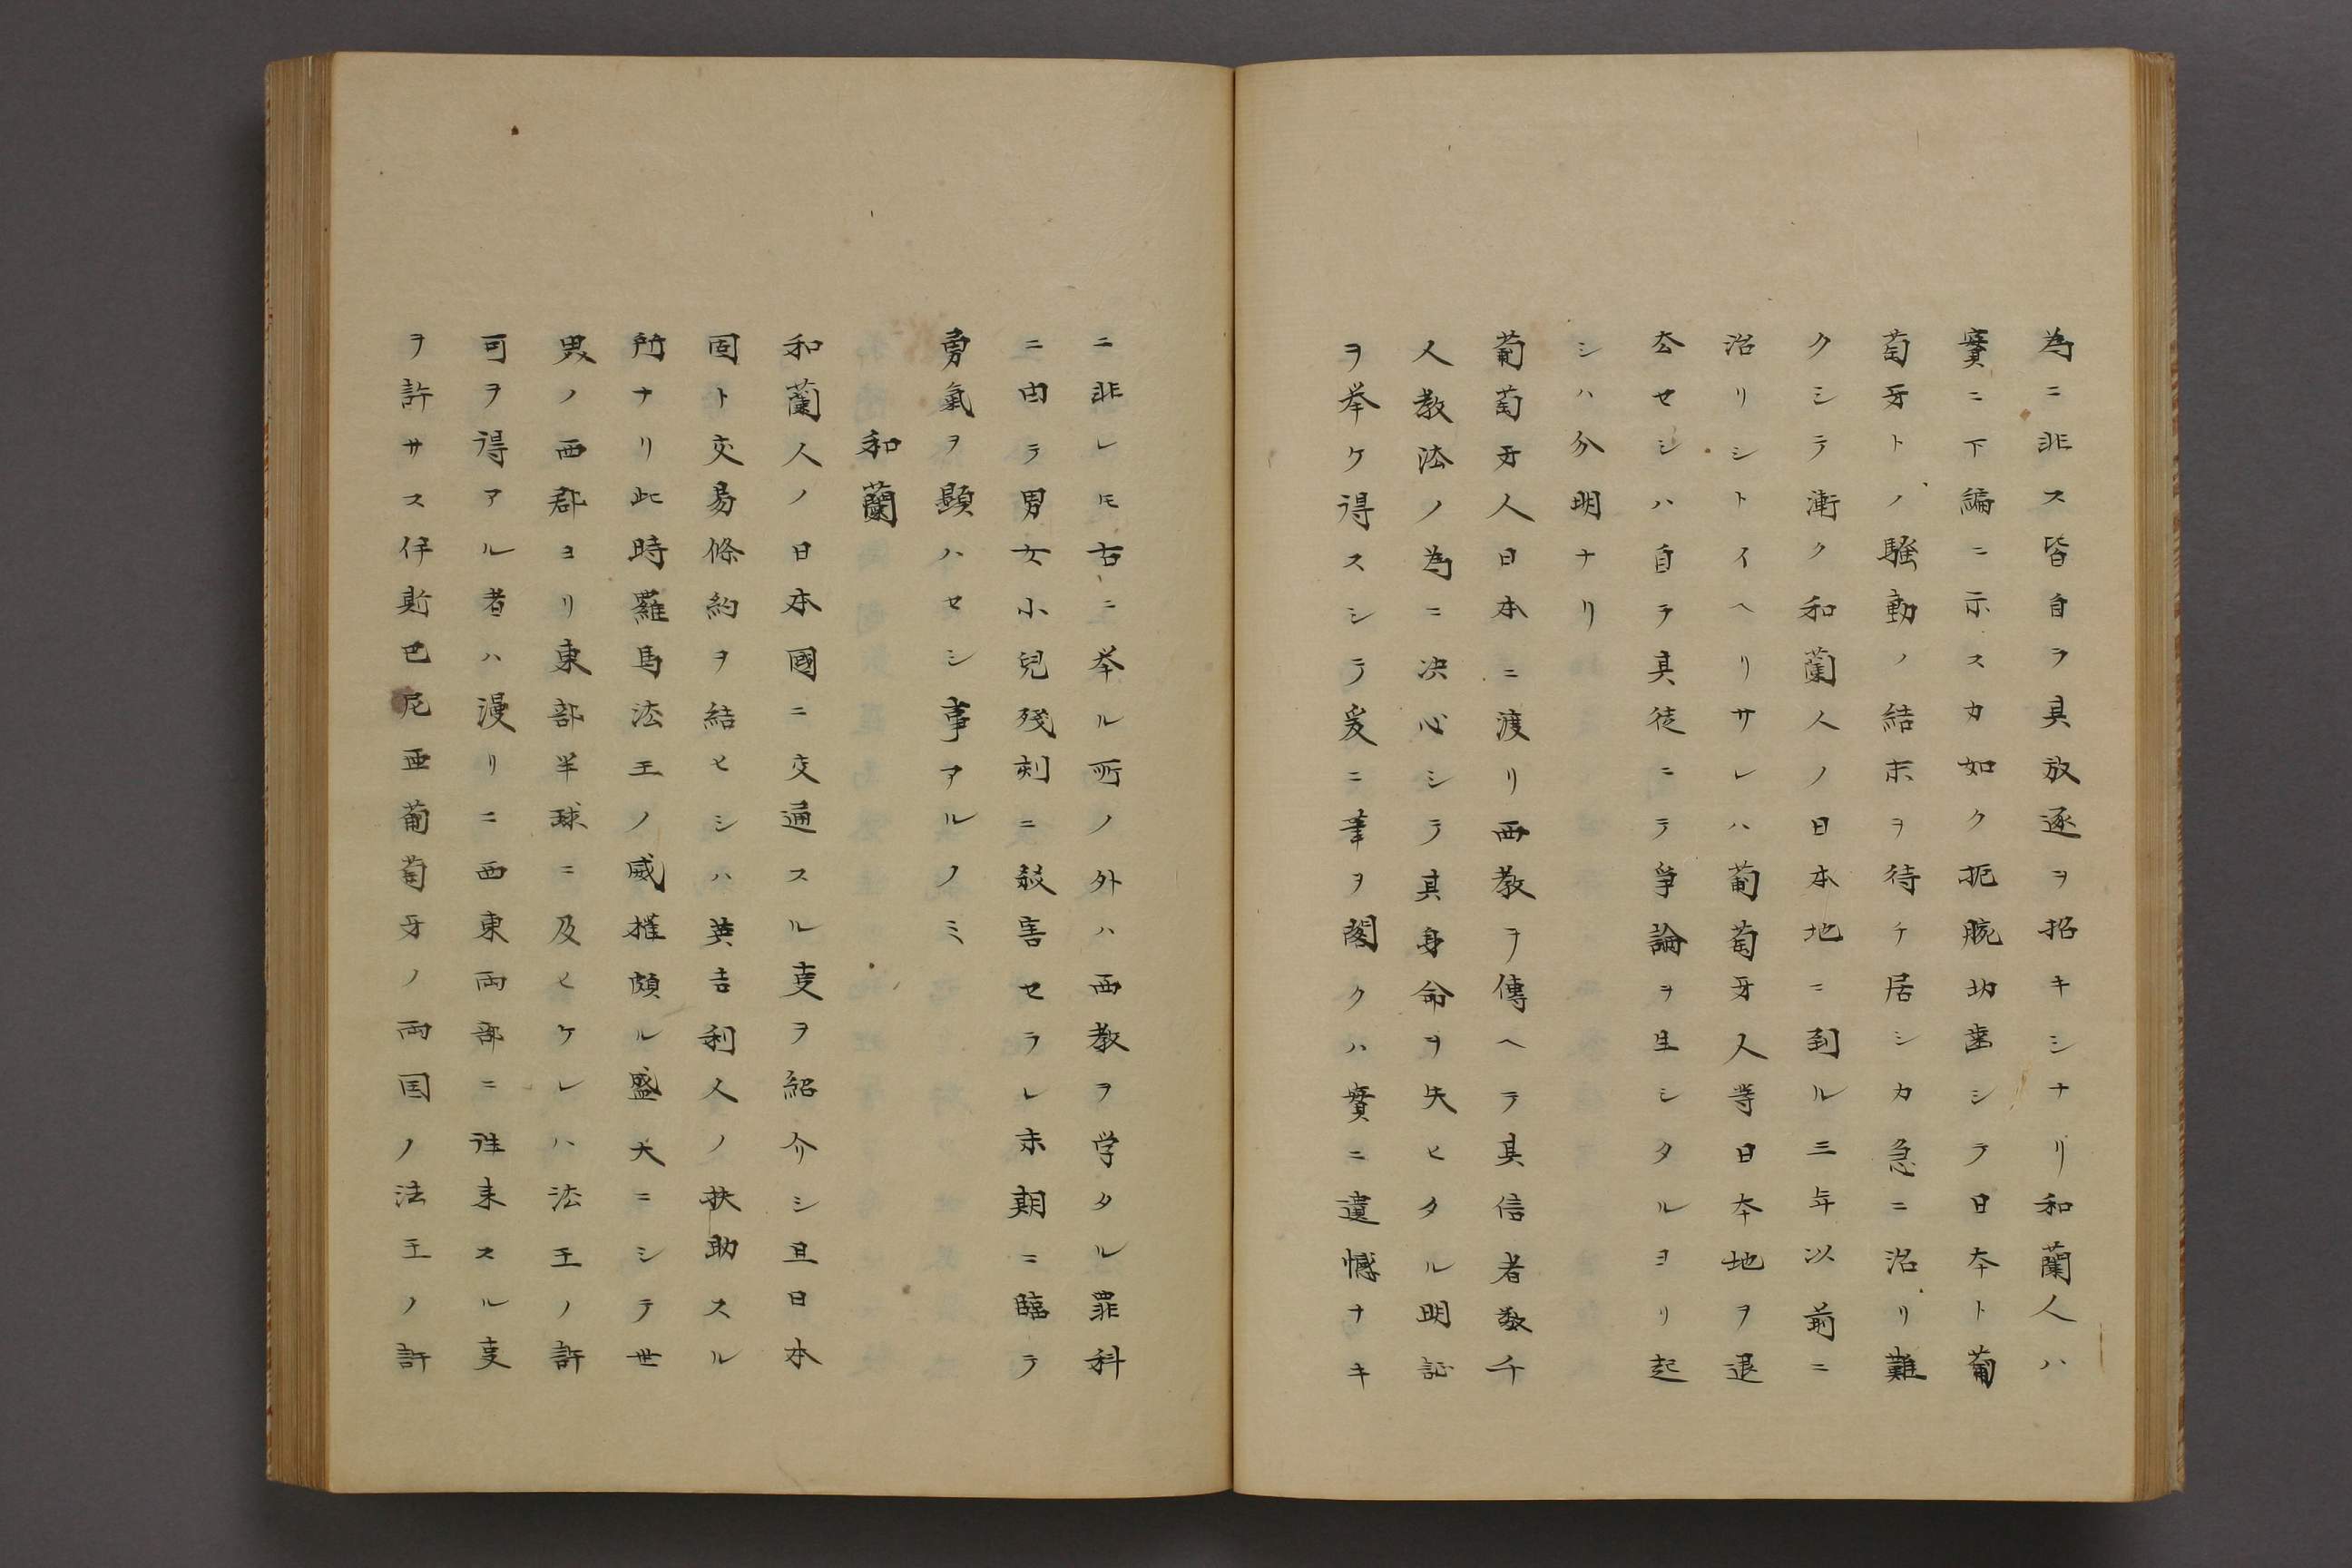 為ニ非ス皆自ラ其放逐ヲ招キシナリ和蘭人ハ
實ニ下編ニ示スカ如ク扼腕切歯シテ日本ト葡
萄牙トノ騒動ノ結末ヲ待チ居シカ急ニ治リ難
クシテ漸ク和蘭人ノ日本地ニ到ル三年以前ニ
治リシトイヘリサレハ葡萄牙人等日本地ヲ退
去セシハ自ラ其徒ニテ爭論ヲ生シタルヨリ起
シハ分明ナリ
葡萄牙人日本ニ渡リ西教ヲ傳ヘテ其信者数千
人教法ノ為ニ决心シテ其身命ヲ失ヒタル明証
ヲ挙ケ得スシテ爰ニ筆ヲ閣クハ實ニ遺憾ナキ
ニ非レ𪜈右ニ挙ル所ノ外ハ西教ヲ学タル罪科
ニ由テ男女小兒殘刻ニ殺害セラレ末期ニ臨テ
勇氣ヲ顯ハセシ事アルノミ
和蘭
和蘭人ノ日本國ニ交通スル叓ヲ紹介シ且日本
国ト交易條約ヲ結ヒシハ英吉利人ノ扶助スル
所ナリ此時羅馬法王ノ威権頗ル盛大ニシテ世
界ノ西郡ヨリ東部半球ニ及ヒケレハ法王ノ許
可ヲ得アル者ハ漫リニ西東両部ニ徃来スル叓
ヲ許サス伊斯巴尼亜葡萄牙ノ両国ノ法王ノ許